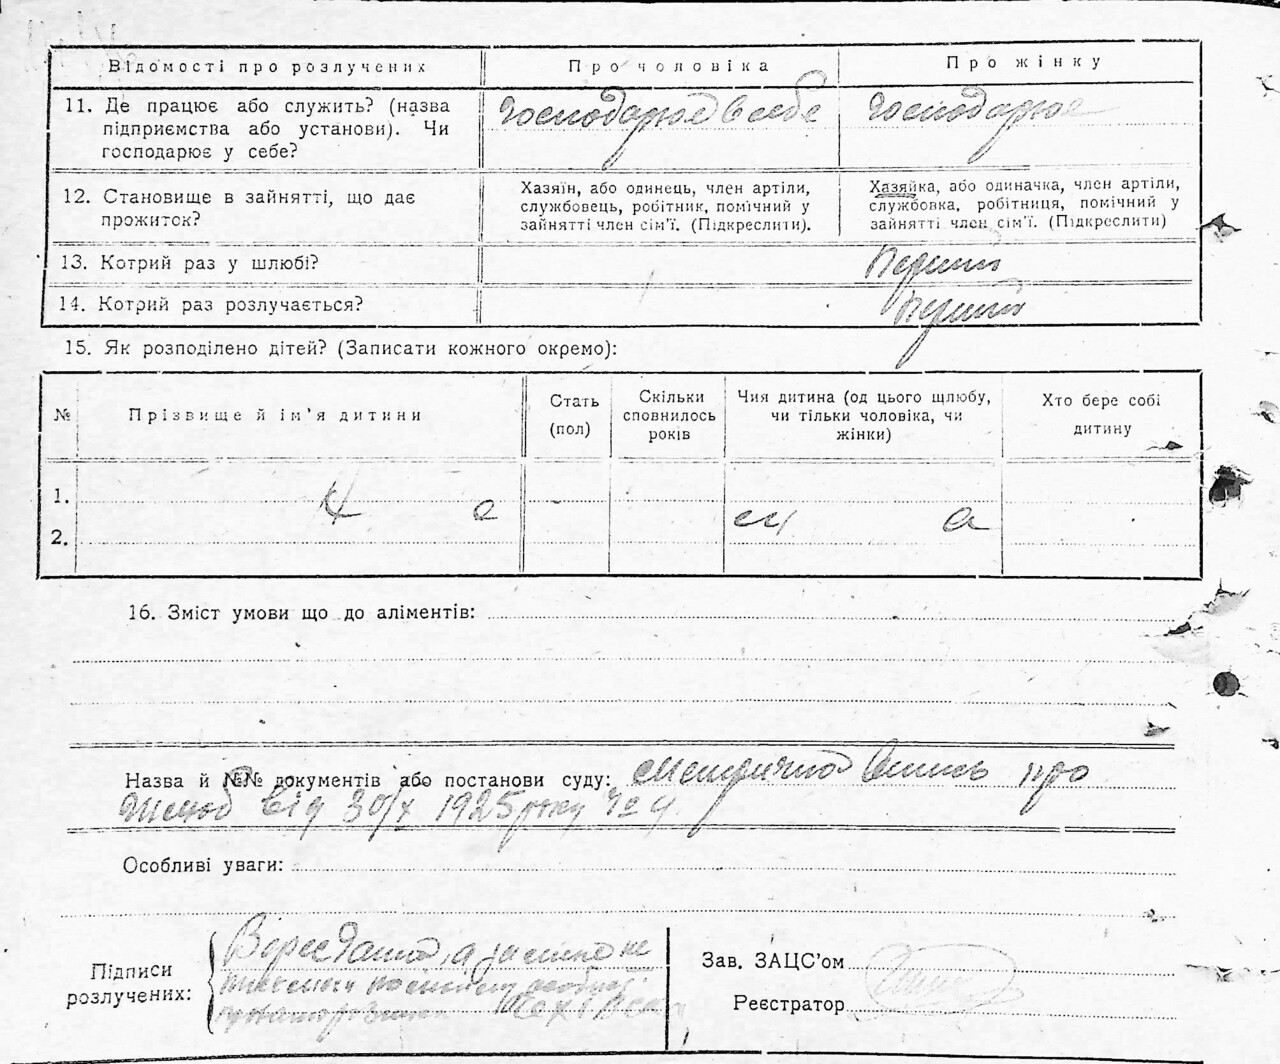 Відомості про розлучених
Про чоловіка
Про жінку
11. Де працює або служить? (назва
підприємства або установи). Чи
господарює у себе?
Господарює в себе
Господарює
12. Становище в зайнятті, що дає
прожиток?
Хазяїн, або одинець, член артіли,
службовець, робітник, помічний у
зайнятті член сім'ї. (Підкреслити).
Хазяйка, або одиначка, член артіли,
службовка, робітниця, помічний у
зайнятті член сім'ї. (Підкреслити)
13. Котрий раз у шлюбі?
Перший
14. Котрий раз розлучається?
Перший
15. Як розподілено дітей? (Записати кожного окремо):
№
Прізвище й ім'я дитини
Стать
(пол)
Скільки
сповнилось
років
Чия дитина (од цього щлюбу,
чи тільки чоловіка, чи
жінки)
Хто бере собі
дитину
1.
2.
Н е м а
16. Зміст умови що до аліментів:
Назва й №№ документів або постанови суду: Метрична Випись про
Шлюб від 30/X 1925 року № 4.
Особливі уваги:
Підписи
розлучених:
а за
не
Зав. ЗАЦС'ом
Реєстратор